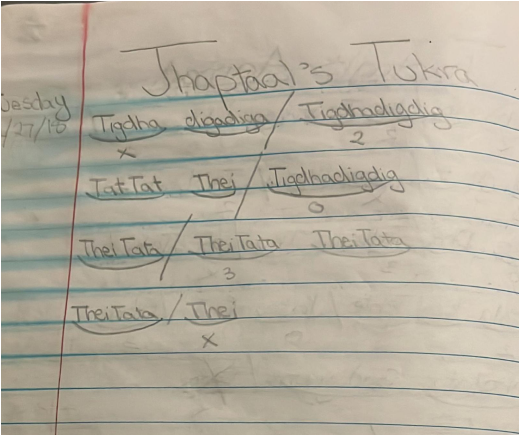 Jhaptaal's Tukra
uesday
/27/18
Tigdha digadiga / Tigdhadigdig
x 2
Tat Tat Thei / Tigdhadigdig
0
TheiTata / TheiTata TheiTata
3
TheiTata / Thei
x